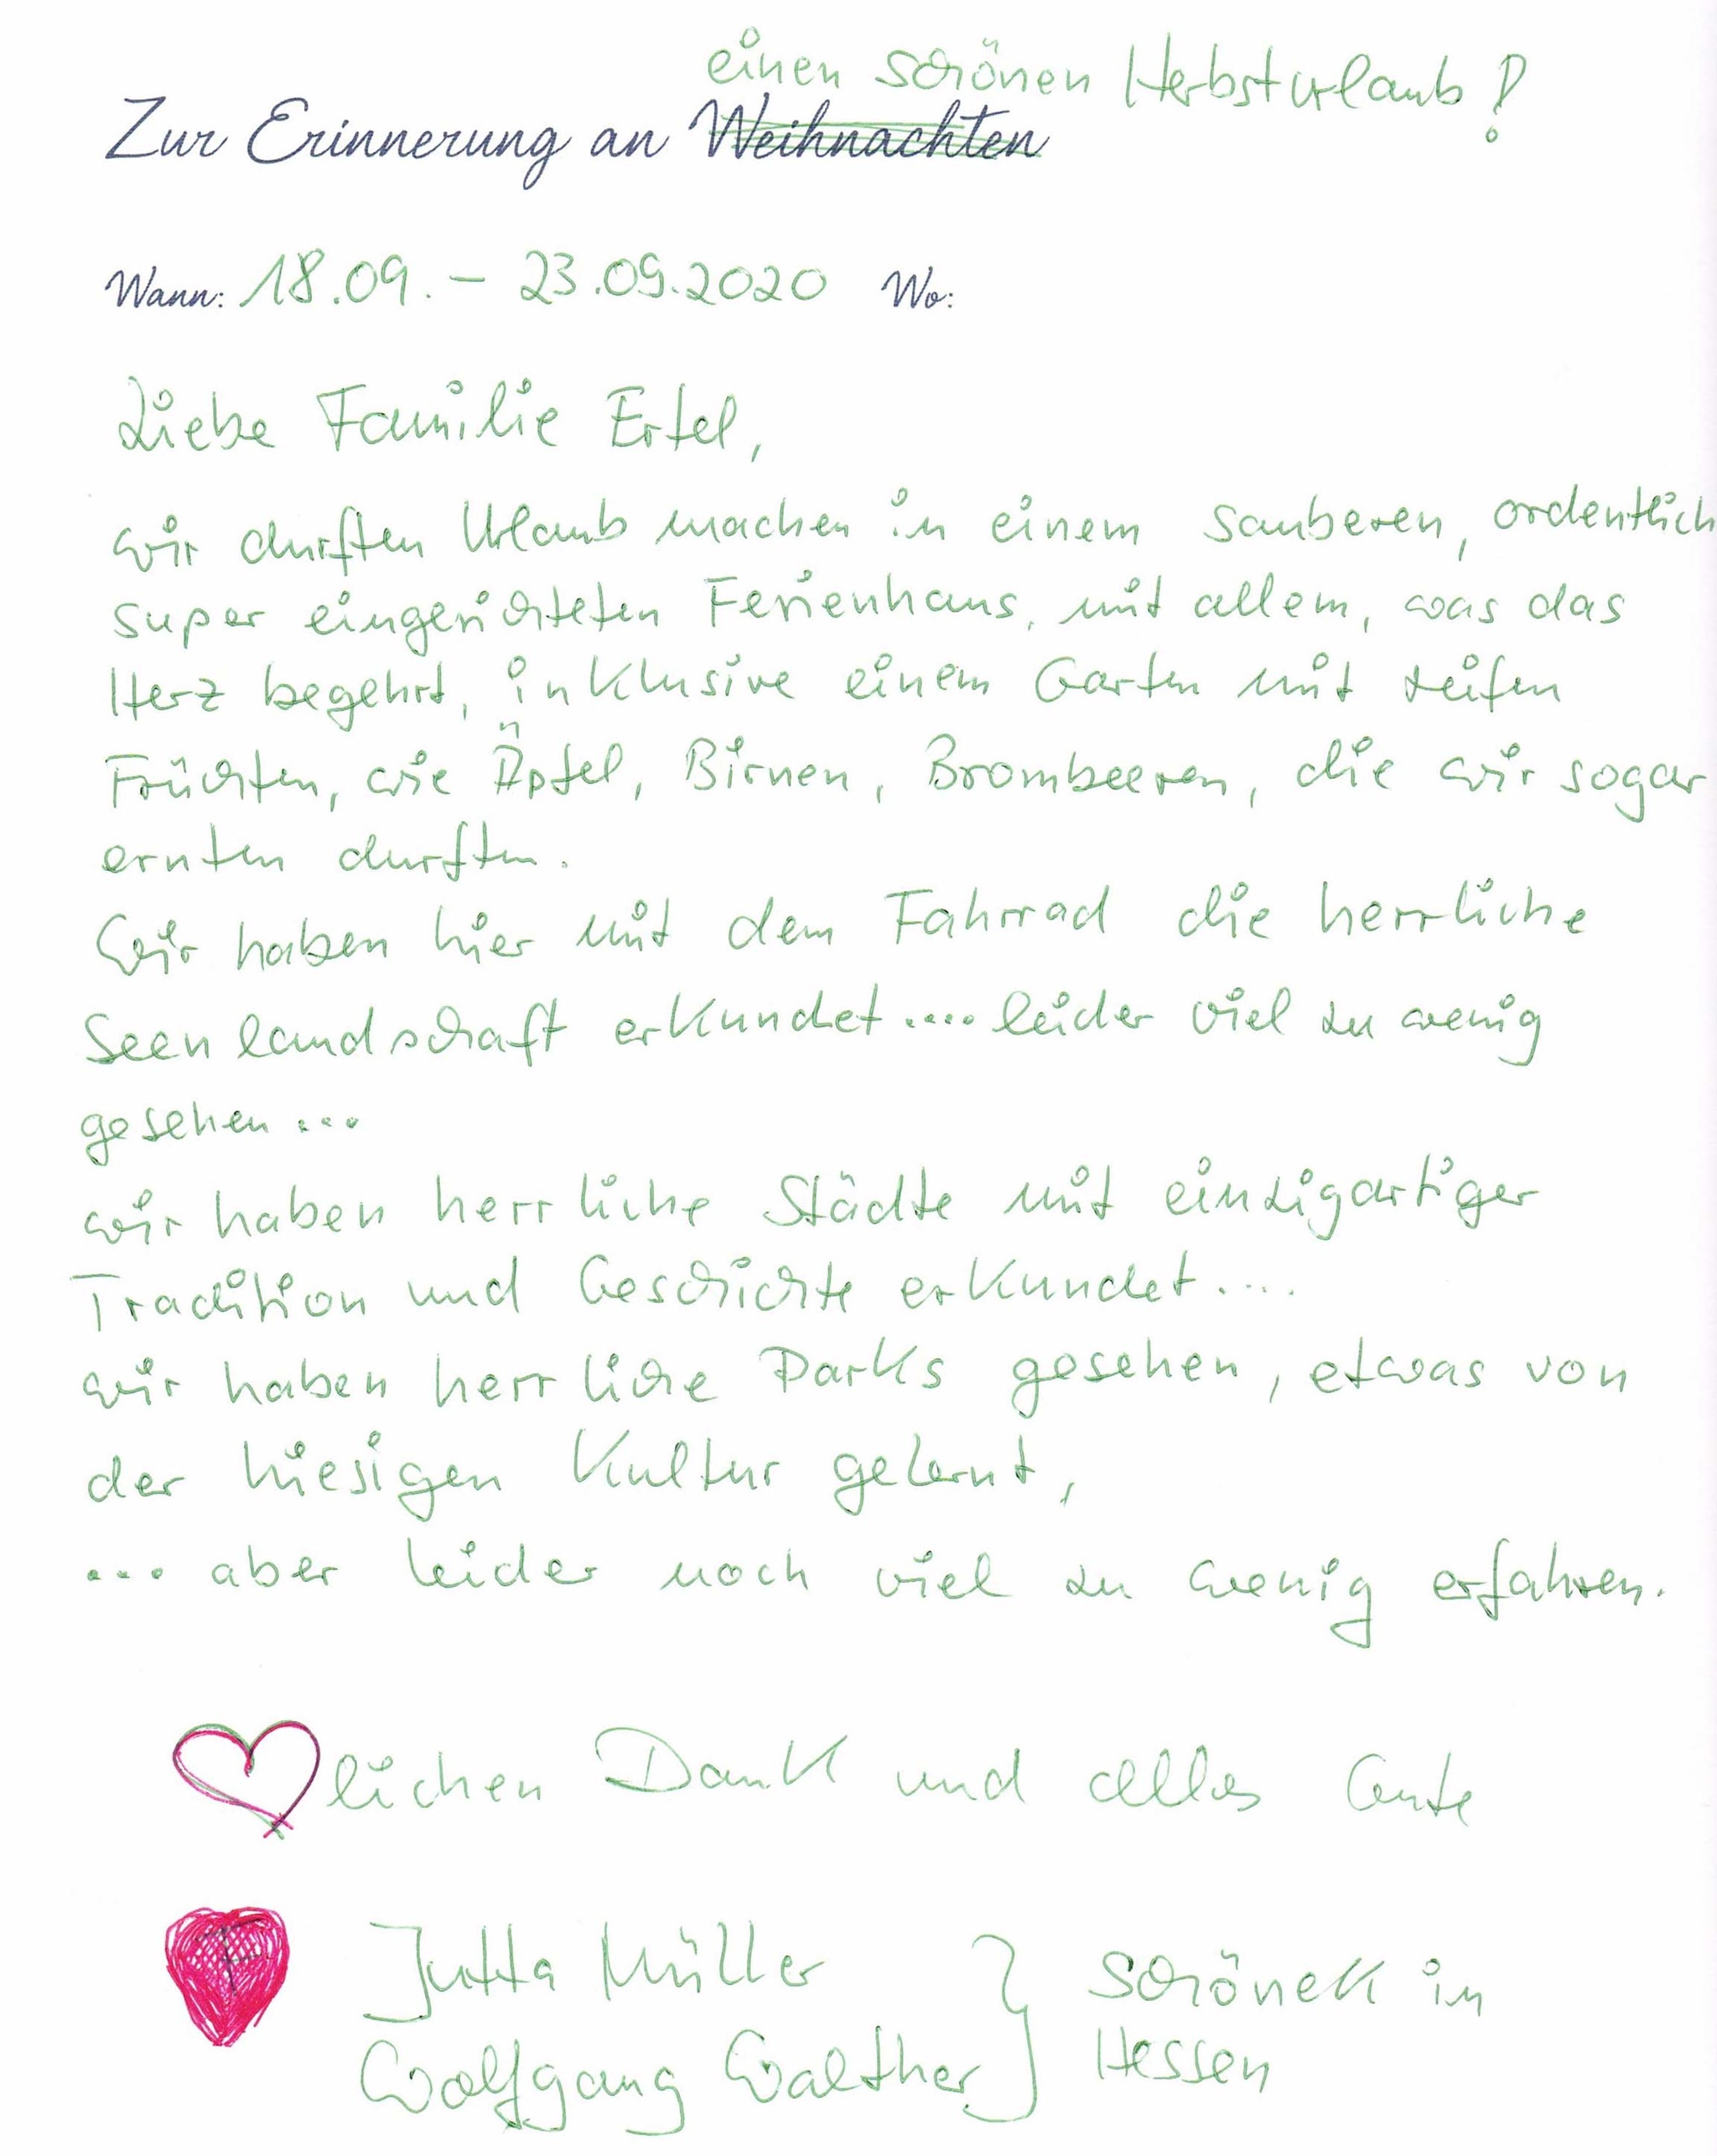 einen schönen Herbsturlaub!
Zur Erinnerung an Weihnachten
Wann: 18.09. – 23.09.2020 Wo:
Liebe Familie Ertel,
wir durften Urlaub machen in einem sauberen, ordentlich
super eingerichteten Ferienhaus, mit allem, was das
Herz begehrt, inklusive einem Garten mit reifen
Früchten, wie Äpfel, Birnen, Brombeeren, die wir sogar
ernten durften.
Wir haben hier mit dem Fahrrad die herrliche
Seenlandschaft erkundet.... leider viel zu wenig
gesehen...
wir haben herrliche Städte mit einzigartiger
Tradition und Geschichte erkundet....
wir haben herrliche Parks gesehen, etwas von
der hiesigen Kultur gelernt,
... aber leider noch viel zu wenig erfahren.
lichen Dank und alles Gute
Jutta Müller } Schöneck in
Wolfgang Walther } Hessen